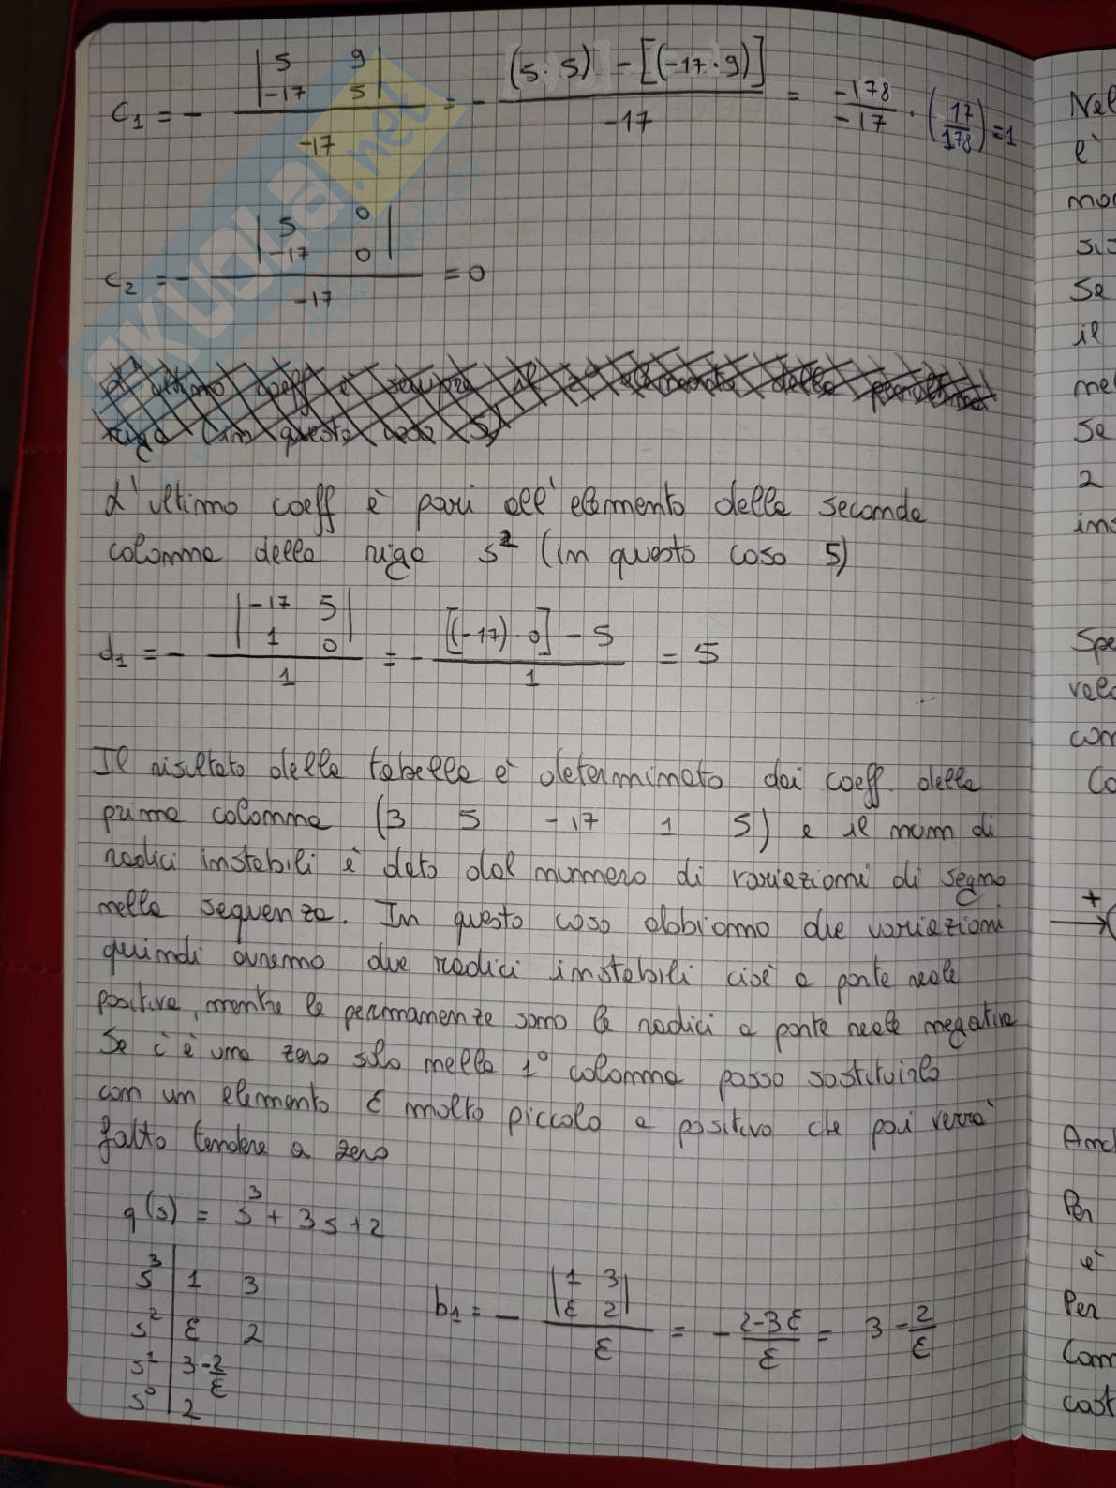 c₁ = - |5 9; -17 5| / -17 = - (5·5) - [(-17·9)] / -17 = -178 / -17 · (17/178) = 1
c₂ = - |5 0; -17 0| / -17 = 0
L'ultimo coeff è pari all'elemento della seconda
colonna della riga s² (in questo caso 5)
d₁ = - |-17 5; 1 0| / 1 = - [(-17)·0] - 5 / 1 = 5
Il risultato della tabella è determinato dai coeff. della
prima colonna (3 5 -17 1 5) e il num di
radici instabili è dato dal numero di variazioni di segno
nella sequenza. In questo caso abbiamo due variazioni
quindi avremo due radici instabili cioè a parte reale
positiva, mentre le permanenze sono le radici a parte reale negativa
Se c'è uno zero solo nella 1° colonna posso sostituirlo
con un elemento ε molto piccolo e positivo che poi verrà
fatto tendere a zero
q(s) = s³ + 3s + 2
s³ | 1 3
s² | ε 2
s¹ | 3 - 2/ε
s⁰ | 2
b₁ = - |1 3; ε 2| / ε = - 2-3ε / ε = 3 - 2/ε
Nel
è
Se
il
Se
2
Per
è
Per
SKUOLA.net